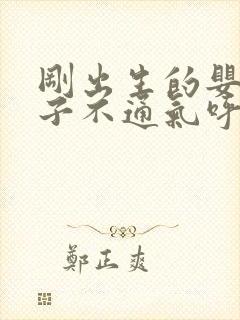 剛出生的嬰
子不通氣呼
鄭正爽